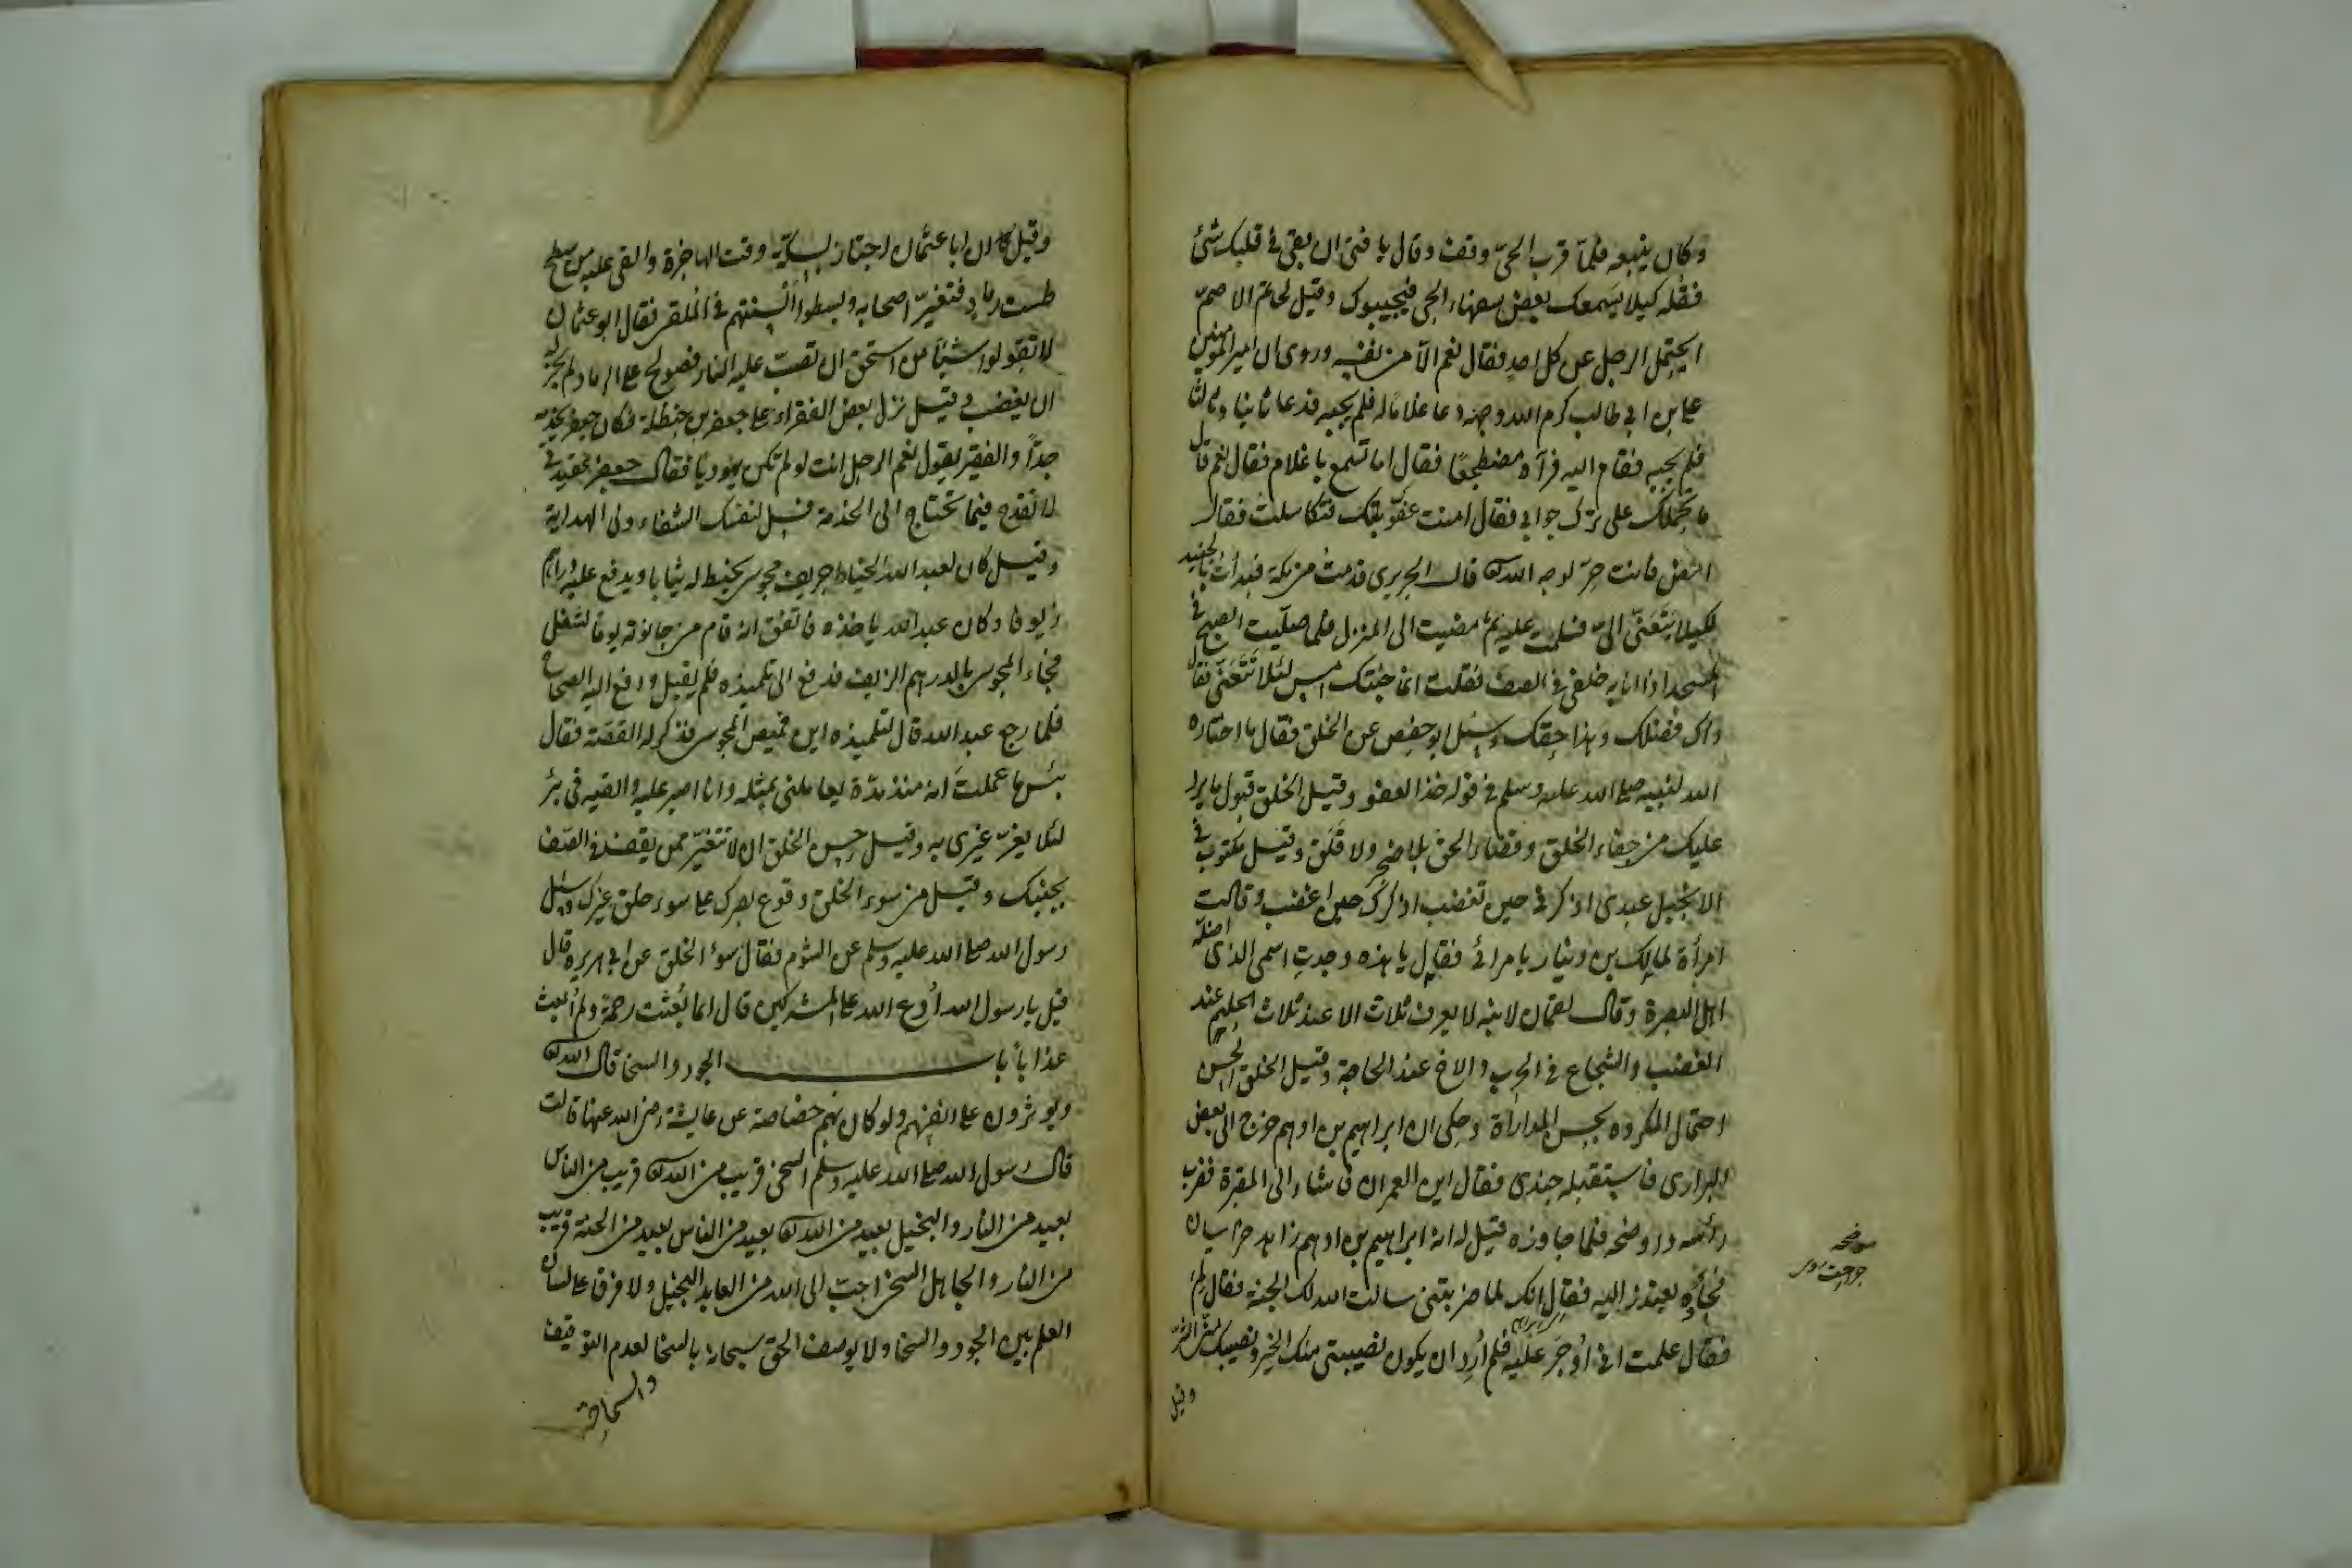 وكان يتبعه فلما قرب الحيّ وقف وقال يا فتى ان بقى في قلبك شئ
فقله كيلا يسمعك بعض سفهاء الحي فيجيبوك وقيل لحاتم الاصمّ
ايحتمل الرجل عن كل احدٍ فقال نعم الّا من نفسه وروى ان امير المؤمنين
على بن ابى طالب كرم الله وجهه دعا غلاماً له فلم يجبه فدعا ثانيا وثالثا
فلم يجبه فقام اليه فرآه مضطجعًا فقال اما تسمع يا غلام فقال نعم قال
ما حملك على ترك جوابى فقال امنت عقوبتك فتكاسلت فقال
امض فانت حرّ لوجه الله قال الجريرى قدمت من مكة فبدأت بالجنيد
لكيلا يتعنّى الىّ فسلمت عليه ثم مضيت الى المنزل فلما صلّيت الصبح في
المسجد اذا انا به خلفى في الصف فقلت انما جئتك امس لئلا تتعنّى فقال
ذاك فضلك وهذا حقك وسئل ابو حفص عن الخلق فقال ما اختاره
الله لنبيه صلى الله عليه وسلم في قوله خذ العفو وقيل الخلق قبول ما يرد
عليك من جفاء الخلق وقضاء الحق بلا ضجر ولا قلق وقيل مكتوب في
الانجيل عبدى اذكرنى حين تغضب اذكرك حين اغضب وقالت
امرأة لمالك بن دينار يا مرائى فقال يا هذه وجدتِ اسمى الذى اضلّه
اهل البصرة وقال لقمان لابنه لا يعرف ثلاث الا عند ثلاث الحليم عند
الغضب والشجاع في الحرب والاخ عند الحاجة وقيل الخلق الحسن
احتمال المكروه بحسن المداراة وحكى ان ابراهيم بن ادهم خرج الى بعض
البرارى فاستقبله جندى فقال اين العمران فاشار الى المقبرة فضرب
رأسه واوضحه فلما جاوزه قيل له انه ابراهيم بن ادهم زاهد خراسان
فجاءه يعتذر اليه فقال انك لما ضربتنى سالت الله لك الجنة فقال لِمَ
فقال علمت انى اُوجَر عليه فلم اُرِد ان يكون نصيبى منك الخير ونصيبك منى الشرّ
وقيل
موضحه
وقيل كان ابا عثمان اجتاز بسكّة وقت الهاجرة والقى عليه من سطح
طست رماد فتغيّر اصحابه وبسطوا السنتهم في الملقى فقال ابو عثمان
لا تقولوا شيئاً من استحق ان تصبّ عليه النار فصولح على الرماد لم يجز له
ان يغضب وقيل نزل بعض الفقراء على جعفر بن حنظلة فكان جعفر يخدمه
جدّاً والفقير يقول نعم الرجل انت لو لم تكن يهوديا فقال جعفر عقيدتى
لا تقدح فيما تحتاج الى الخدمة فسل لنفسك الشفاء ولى الهداية
وقيل كان لعبد الله الخياط حريف مجوسى يخيط له ثيابا ويدفع عليه دراهم
زيوفا وكان عبد الله ياخذه فاتفق انه قام من حانوته يوما لشغل
فجاء المجوسى بالدرهم الزيف فدفع الى تلميذه فلم يقبل ودفع اليه الصحاح
فلما رجع عبد الله قال لتلميذه اين قميص المجوسى فذكر له القصّة فقال
بئس ما عملتَ انه منذ مدّة يعاملنى بمثله وانا اصبر عليه والقيه فى بئر
لئلا يغرّ غيرى به وقيل حسن الخلق ان لا تتغيّر ممن يقف في الصف
بجنبك وقيل من سوء الخلق وقوع بصرك على سوء خلق غيرك وسئل
رسول الله صلى الله عليه وسلم عن الشوم فقال سوء الخلق عن ابى هريره قال
قيل يا رسول الله اُدع الله على المشركين قال انما بُعثت رحمة ولم اُبعث
عذاباً باب الجود والسخا قال الله
ويوثرون على انفسهم ولو كان بهم خصاصة عن عايشة رضى الله عنها قالت
قال رسول الله صلى الله عليه وسلم السخى قريب من الله قريب من الناس
بعيد من النار والبخيل بعيد من الله بعيد من الناس بعيد من الجنة قريب
من النار والجاهل السخى احبّ الى الله من العابد البخيل ولا فرق على لسان
العلم بين الجود والسخا ولا يوصف الحق سبحانه بالسخا لعدم التوقيف